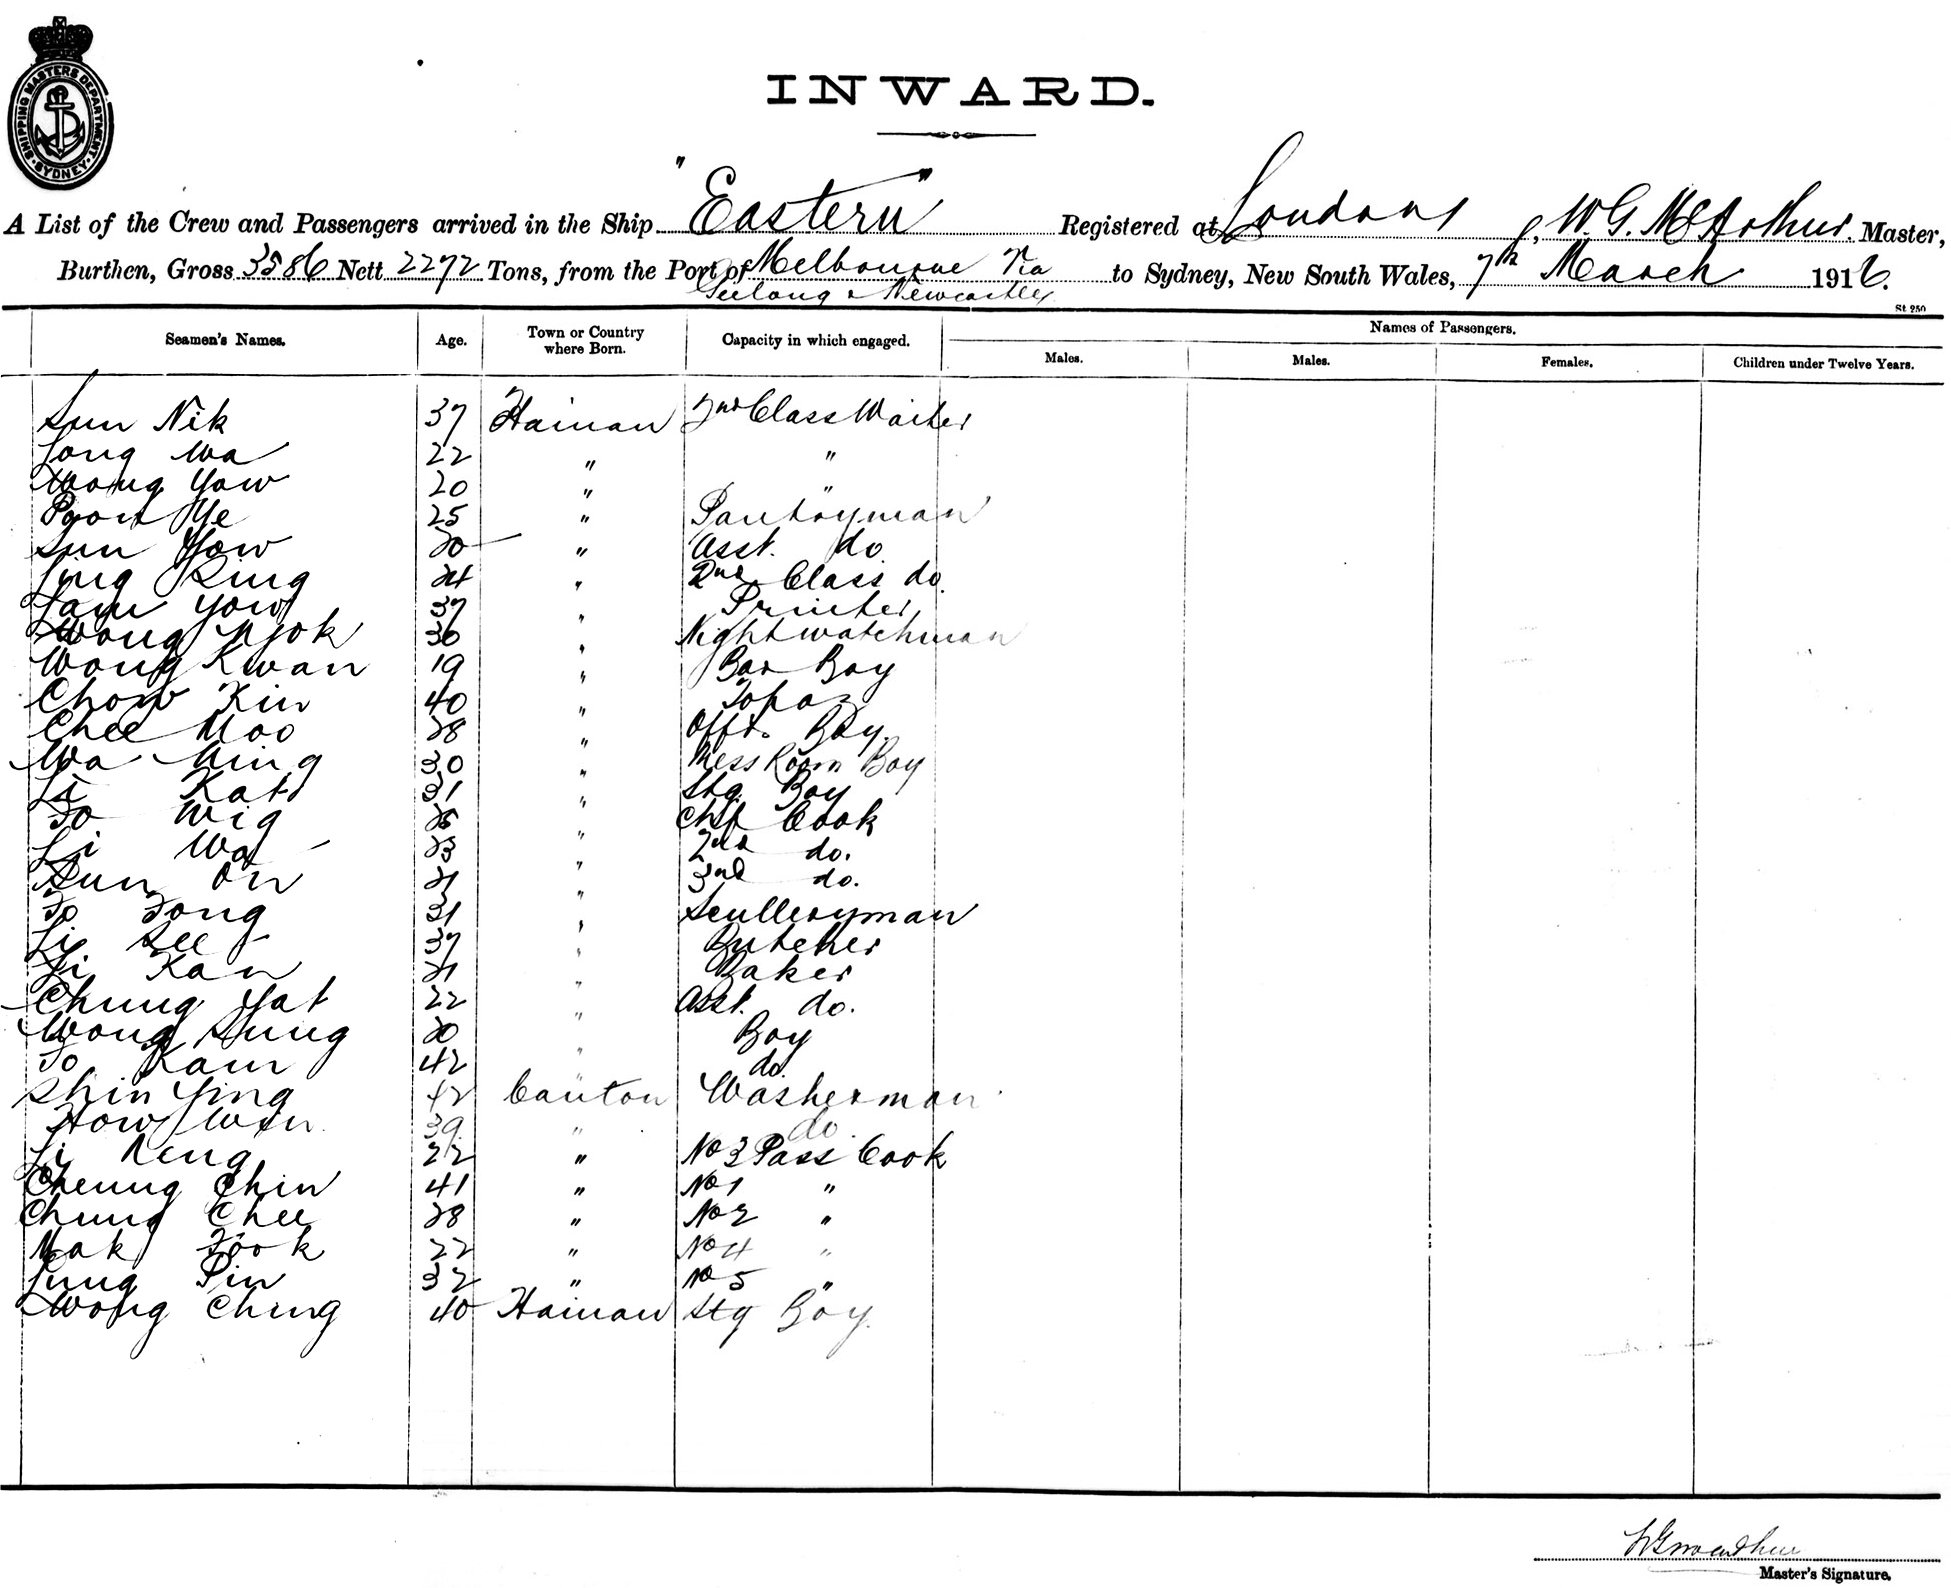 SHIPPING MASTERS DEPARTMENT · SYDNEY ·
INWARD.
A List of the Crew and Passengers arrived in the Ship "Eastern" Registered at London, W. G. McArthur. Master,
Burthen, Gross 3586 Nett 2272 Tons, from the Port of Melbourne Via to Sydney, New South Wales, 7th March 1916.
Geelong & Newcastle
St 250
Seamen's Names. Age. Town or Country where Born. Capacity in which engaged. Names of Passengers.
Males. Males. Females. Children under Twelve Years.
Sun Nik 37 Hainan 2nd Class Waiter
Tong Wa 22 " "
Wong Yow 20 " "
Poon Ye 25 " Pantryman
Sun Yow 20 " Asst. do
Ling King 24 " 2nd Class do.
Lam Yow 37 " Printer
Wong Njok 30 " Nightwatchman
Wong Kwan 19 " Bar Boy
Chow Kin 40 " Topaz
Chee Moo 28 " Offr. Boy.
Wa Ming 30 " Mess Room Boy
Li Kat 31 " Stg. Boy
To Wig 25 " Chf Cook
Li Wo 23 " 2nd do.
Sun On 21 " 3rd do.
To Tong 31 " Sculleryman
Li See 37 " Butcher
Li Kan 21 " Baker
Chung Yat 22 " Asst. do.
Wong Sung 20 " Boy
To Kam 42 " do.
Shin Ying 42 Canton Washerman
How Wen 39 " do
Li Keng 22 " No 3 Pass Cook
Cheung Chin 41 " No 1 "
Chung Chee 28 " No 2 "
Mak Fook 22 " No 4 "
Lung Pin 32 " No 5 "
Wong Ching 40 Hainan Stg Boy.
Master's Signature.